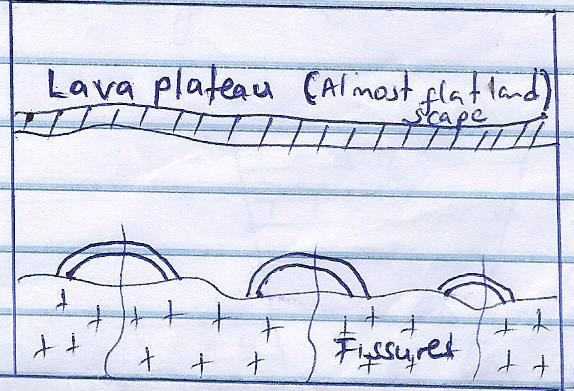 Lava plateau (Almost flat land
scape)
Fissures